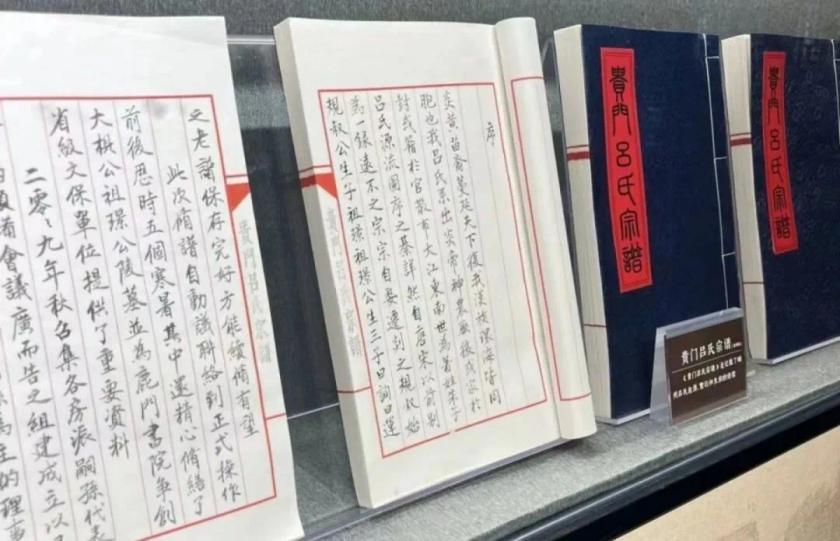 之老譜保存完好方能續脩有望
此次脩譜自動議聯絡到正式操作
前後歷時五個寒暑其中還精心脩繕了
大棋公祖璟公陵墓並為鹿門書院爭創
省級文保單位提供了重要資料
二零〇九年秋召集各房派嗣孫代表
會議廣而告之組建成立以
為主的理事
貴門呂氏宗譜
序
炎黃苗裔蔓延天下後我漢族皆同
胞也我呂氏系出炎帝神農
封或著於官散布大江東南世為著姓
呂氏源流圖序之纂詳然自唐宋以
為一錄遠不之宗宗自婺遷剡之規叔始
規叔公生子祖璟祖璟公生三子曰詞曰
貴門呂氏宗譜
貴門呂氏宗譜
貴門呂氏宗譜
贵门吕氏宗谱
《贵门吕氏宗谱》